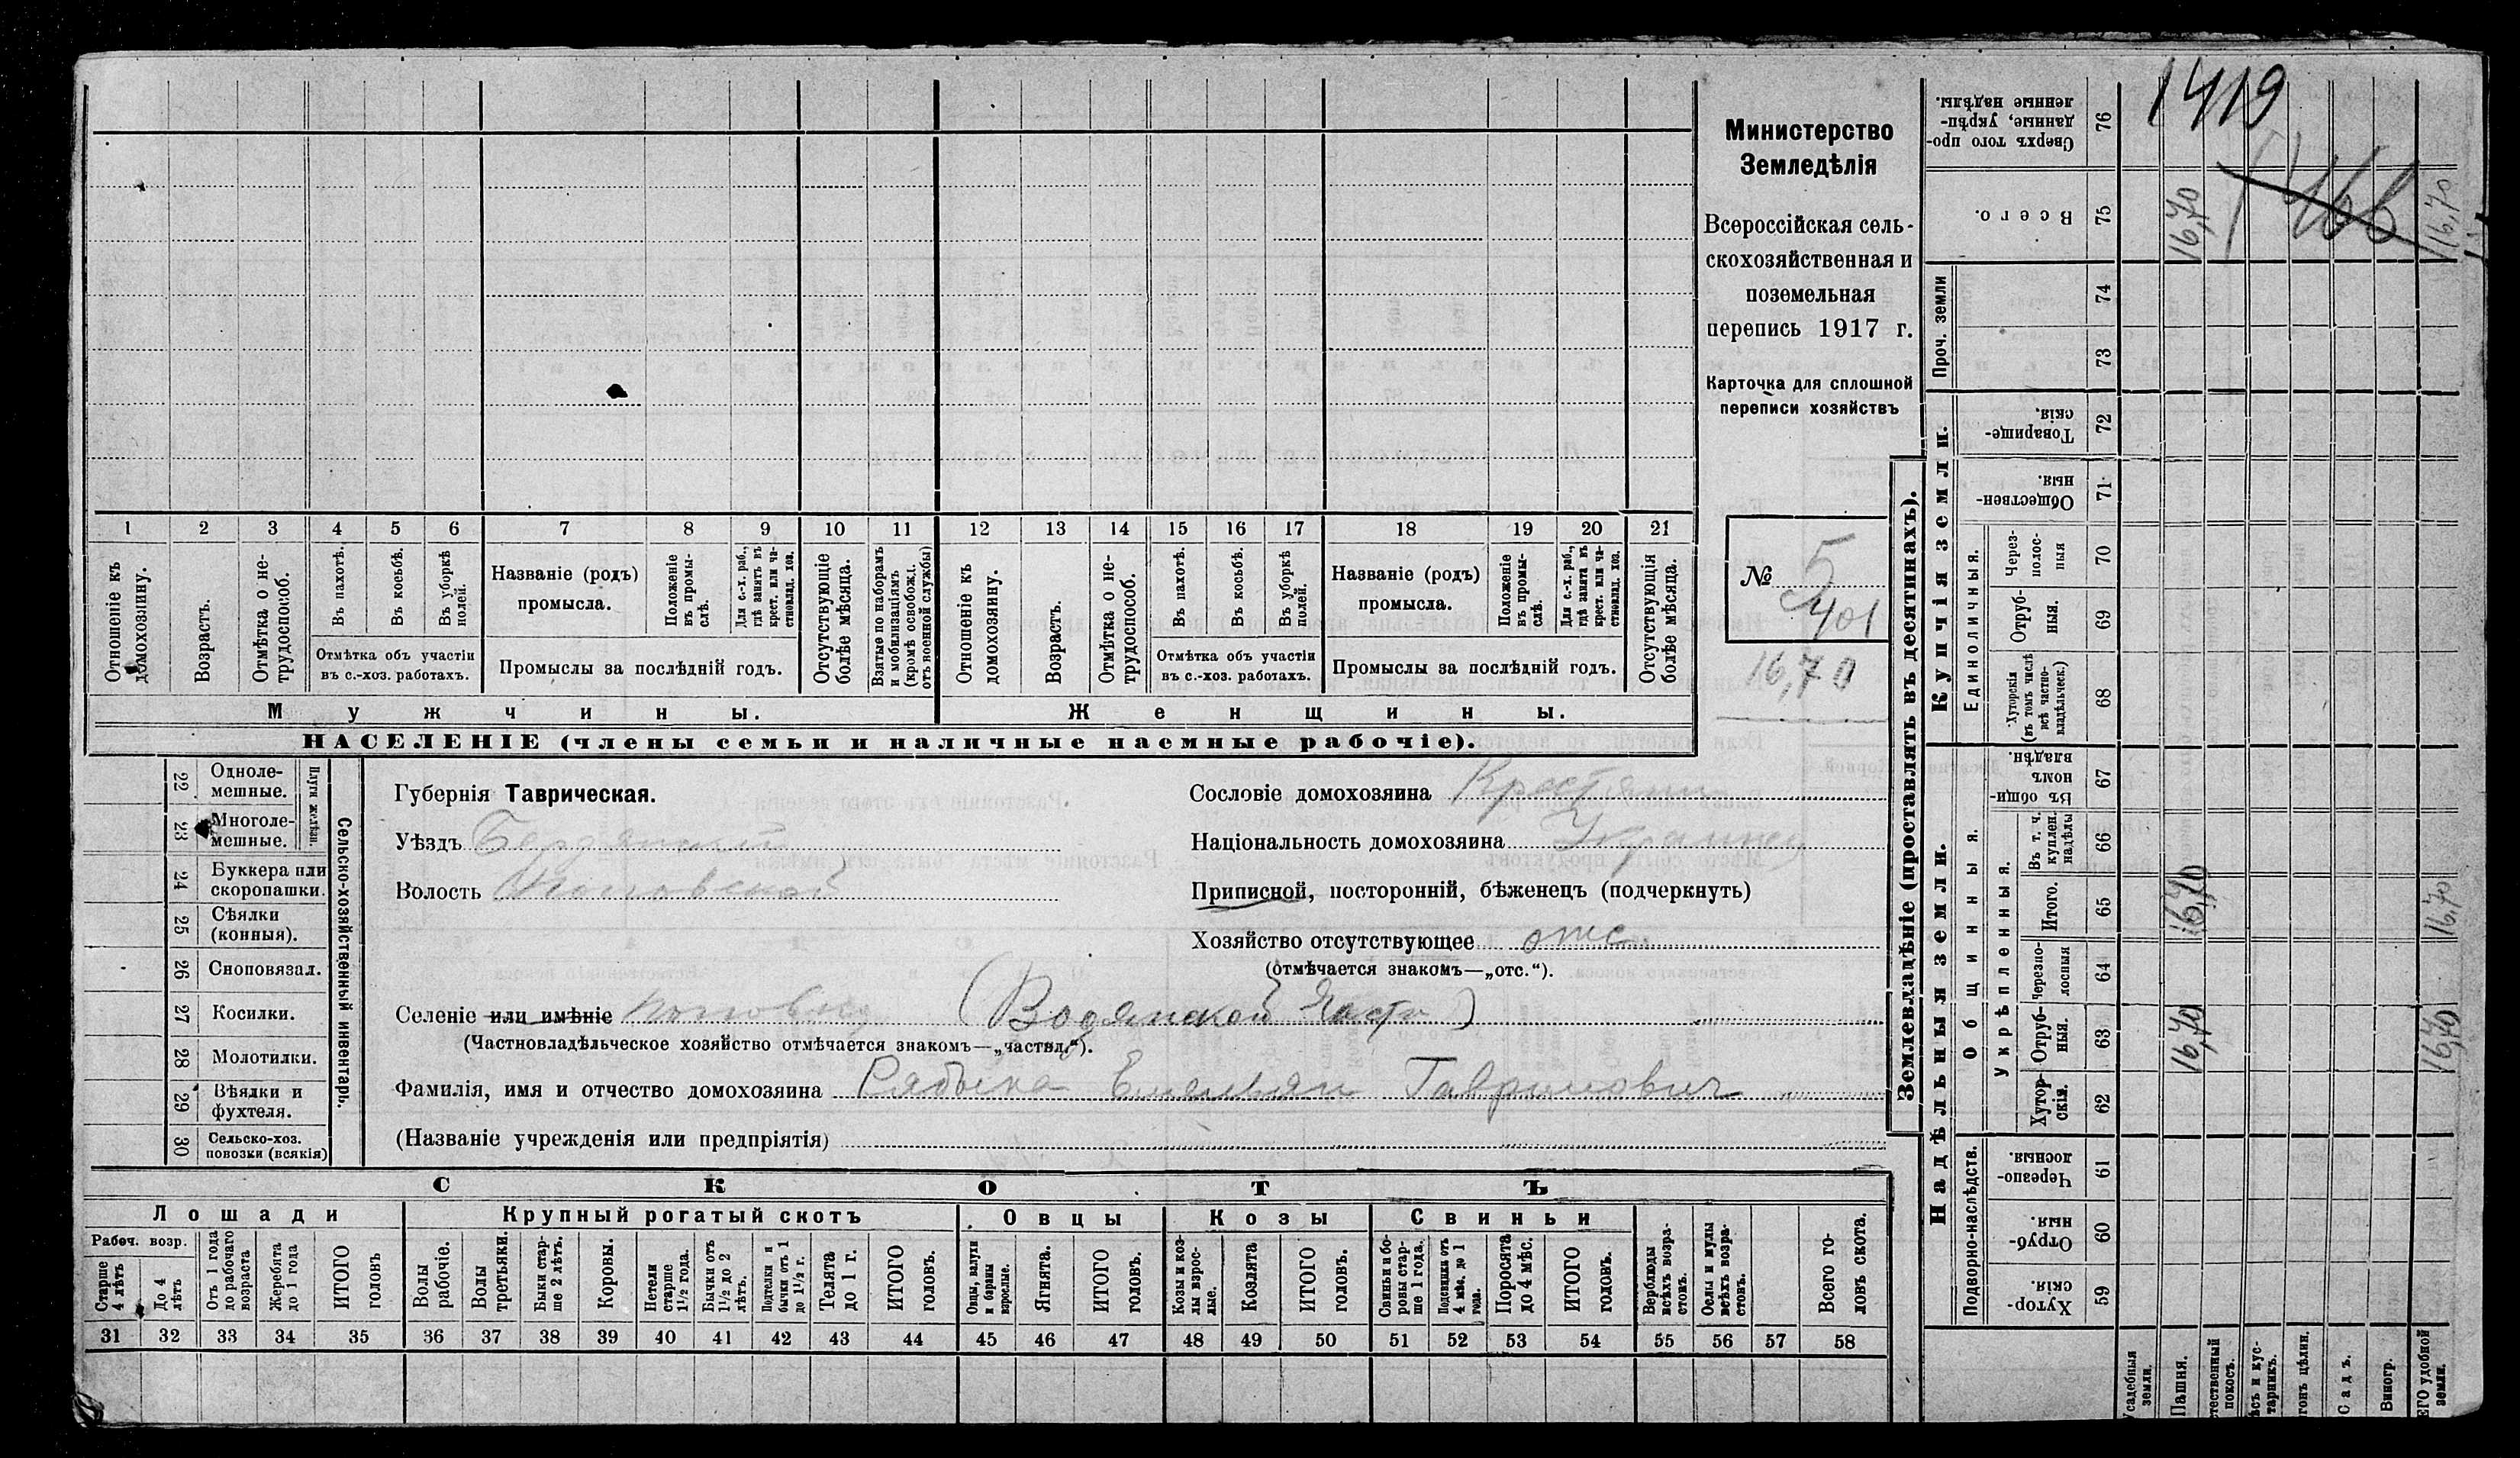 Министерство
Земледѣлія
Всероссійская сель-
скохозяйственная и
поземельная
перепись 1917 г.
Карточка для сплошной
переписи хозяйствъ
№ 5
401
16,70
1 2 3 4 5 6 7 8 9 10 11 12 13 14 15 16 17 18 19 20 21
Отношеніе къ домохозяину.
Возрастъ.
Отмѣтка о не-трудоспособ.
Въ пахотѣ.
Въ косьбѣ.
Въ уборкѣ полей.
Отмѣтка объ участіи
въ с.-хоз. работахъ.
Названіе (родъ)
промысла.
Положеніе въ промы-слѣ.
Для с.-х. раб., гдѣ занятъ въ крест. или ча-стновлад. хоз.
Промыслы за послѣдній годъ.
Отсутствующіе болѣе мѣсяца.
Взятые по наборамъ и мобилизаціямъ (кромѣ освобожд. отъ военной службы)
Отношеніе къ домохозяину.
Возрастъ.
Отмѣтка о не-трудоспособ.
Въ пахотѣ.
Въ косьбѣ.
Въ уборкѣ полей.
Отмѣтка объ участіи
въ с.-хоз. работахъ.
Названіе (родъ)
промысла.
Положеніе въ промы-слѣ.
Для с.-х. раб., гдѣ занята въ крест. или ча-стновлад. хоз.
Промыслы за послѣдній годъ.
Отсутствующія болѣе мѣсяца.
Мужчины.
Женщины.
НАСЕЛЕНІЕ (члены семьи и наличные наемные рабочіе).
22 Одноле-мешные.
23 Многоле-мешные.
Плуги желѣзн.
24 Буккера или скоропашки.
25 Сѣялки (конныя).
26 Сноповязал.
27 Косилки.
28 Молотилки.
29 Вѣялки и фухтеля.
30 Сельско-хоз. повозки (всякія)
Сельско-хозяйственный инвентарь.
Губернія Таврическая.
Уѣздъ Бердянский
Волость Поповской
Сословіе домохозяина Крестянин
Національность домохозяина Украинец
Приписной, посторонній, бѣженецъ (подчеркнуть)
Хозяйство отсутствующее отс.
(отмѣчается знакомъ—„отс.“).
Селеніе или имѣніе (Водянской Части)
(Частновладѣльческое хозяйство отмѣчается знакомъ—„частвл.“).
Фамилія, имя и отчество домохозяина Емельян Гаврилович
(Названіе учрежденія или предпріятія)
СКОТЪ
Лошади
Крупный рогатый скотъ
Овцы
Козы
Свиньи
Рабоч. возр.
Старше 4 лѣтъ
До 4 лѣтъ
Отъ 1 года до рабочаго возраста
Жеребята до 1 года
ИТОГО головъ
Волы рабочіе.
Волы третьяки.
Быки стар-ше 2 лѣтъ.
Коровы.
Нетели старше 1½ года.
Бычки отъ 1½ до 2 лѣтъ.
Подтелки и бычки отъ 1 до 1½ г.
Телята до 1 г.
ИТОГО головъ.
Овцы, валухи и бараны взрослые.
Ягнята.
ИТОГО головъ.
Козы и коз-лы взрос-лые.
Козлята
ИТОГО головъ.
Свиньи и бо-ровы стар-ше 1 года.
Подсвинки отъ 4 мѣс. до 1 года.
Поросята до 4 мѣс.
ИТОГО головъ.
Верблюды всѣхъ возра-стовъ.
Ослы и мулы всѣхъ возра-стовъ.
Всего го-ловъ скота.
31 32 33 34 35 36 37 38 39 40 41 42 43 44 45 46 47 48 49 50 51 52 53 54 55 56 57 58
Землевладѣніе (проставлять въ десятинахъ).
Надѣльныя земли.
Купчія земли.
Проч. земли
Подворно-наслѣдств.
Общинныя
Укрѣпленныя.
Единоличныя.
76 Сверхъ того про-данные, укрѣп-ленные надѣлы.
75 Всего. 16,70 16,70
74
73
72 Товарище-скія.
71 Обществен-ныя.
70 Через-полос-ныя
69 Отруб-ныя.
68 Хуторскія (въ томъ числѣ всѣ частно-владѣльческ.)
67 Въ общи-номъ владѣн.
66 Въ т. ч. куплен. надѣлы
65 Итого. 16,70 16,70
64 Черезпо-лосныя
63 Отруб-ныя. 16,70 16,70
62 Хутор-скія.
61 Черезпо-лосныя.
60 Отруб-ныя.
59 Хутор-скія.
Усадебныя земли.
Пашня.
Садъ.
Виногр.
1419